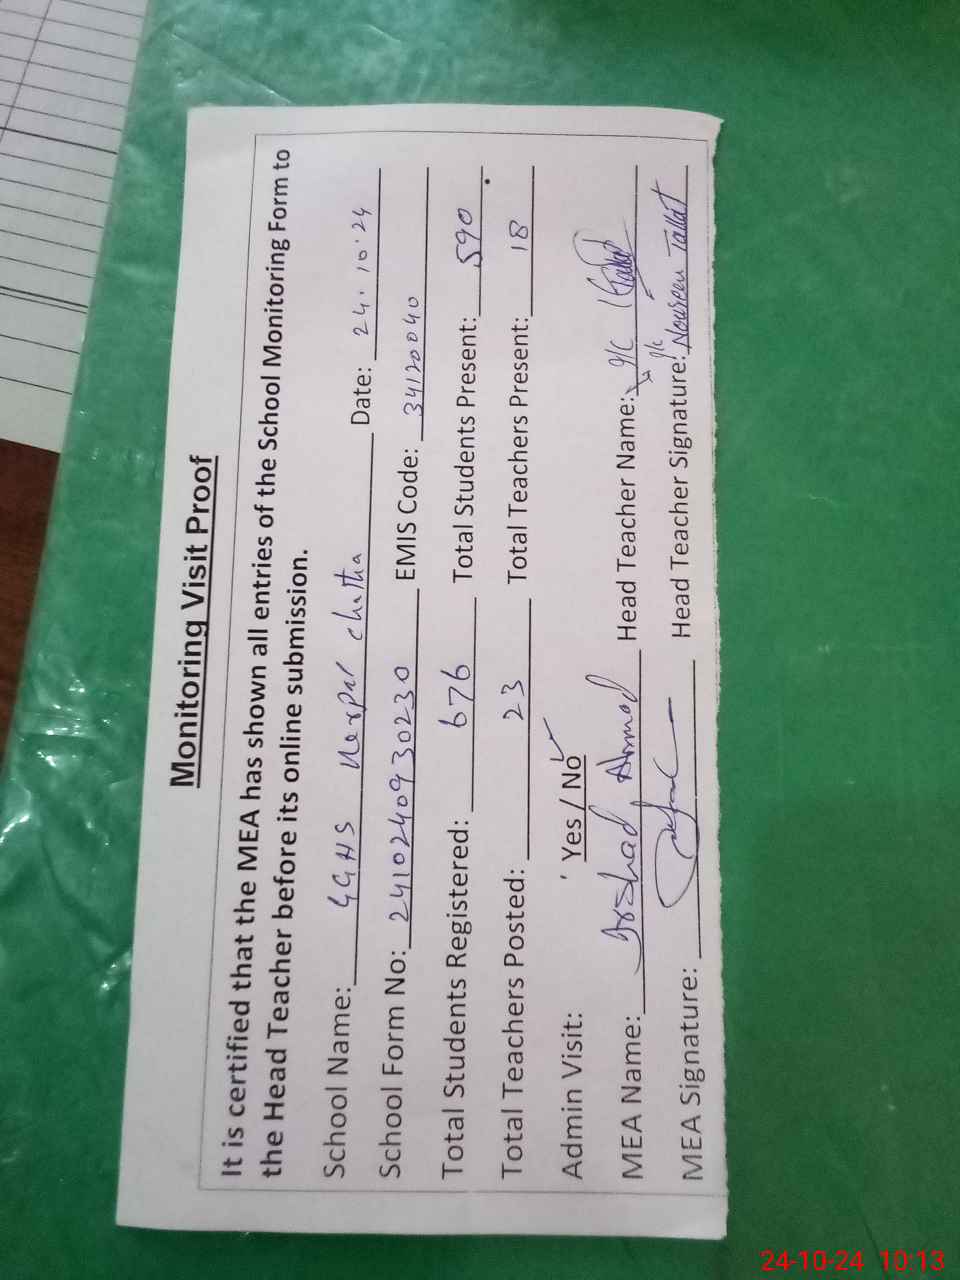 Monitoring Visit Proof
It is certified that the MEA has shown all entries of the School Monitoring Form to
the Head Teacher before its online submission.
School Name: GGHS Nerpur chatha Date: 24.10.24
School Form No: 2410240930230 EMIS Code: 34120040
Total Students Registered: 676 Total Students Present: 590
Total Teachers Posted: 23 Total Teachers Present: 18
Admin Visit: Yes / No ✓
MEA Name: Irshad Ahmad Head Teacher Name: I/C
MEA Signature: Head Teacher Signature: I/c Noureen Tallat
24-10-24 10:13